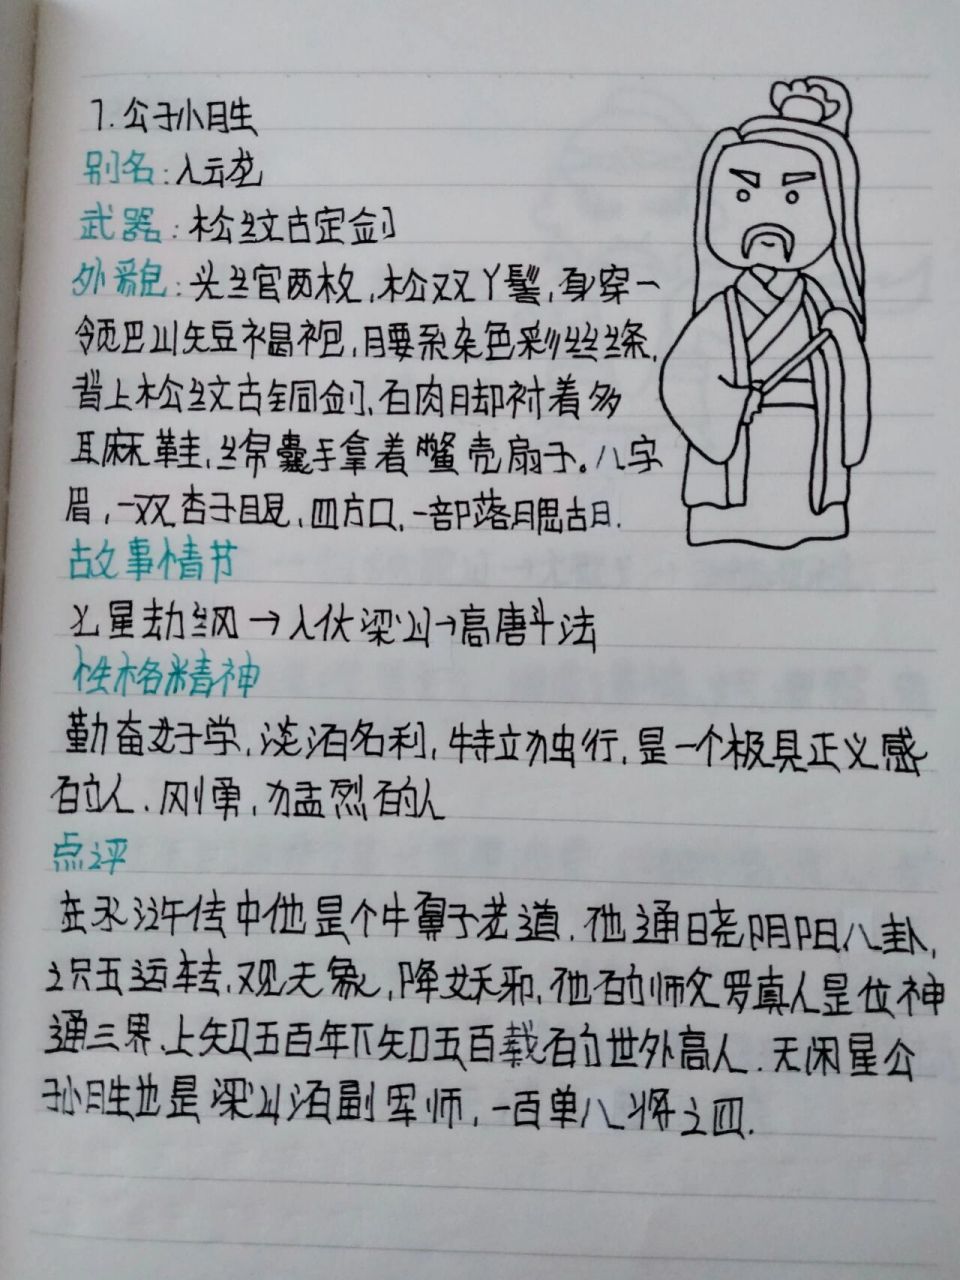 7. 公孙胜
别名:入云龙
武器:松纹古定剑
外貌:头绾两枚,松双丫髻,身穿一
领巴山短褐袍,腰系杂色彩丝绦,
背上松纹古铜剑,白肉脚衬着多
耳麻鞋,绵囊手拿着鳖壳扇子。八字
眉,一双杏子眼,四方口,一部落腮胡.
故事情节
七星劫纲→入伙梁山→高唐斗法
性格精神
勤奋好学,淡泊名利,特立独行,是一个极具正义感
的人.刚勇,猛烈的人
点评
在水浒传中他是个牛鼻子老道.他通晓阴阳八卦,
识五运转,观天象,降妖邪,他的师父罗真人是位神
通三界,上知五百年下知五百载的世外高人.天闲星公
孙胜也是梁山泊副军师,一百单八将之四.